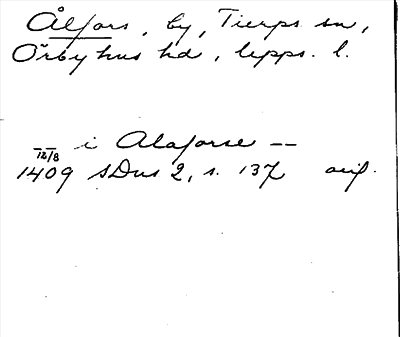 Ålfors, by, Tierps sn,
Örbyhus hd, Upps. l.
i Alaforse --
12/8
1409 SDns 2, s. 137 orig.